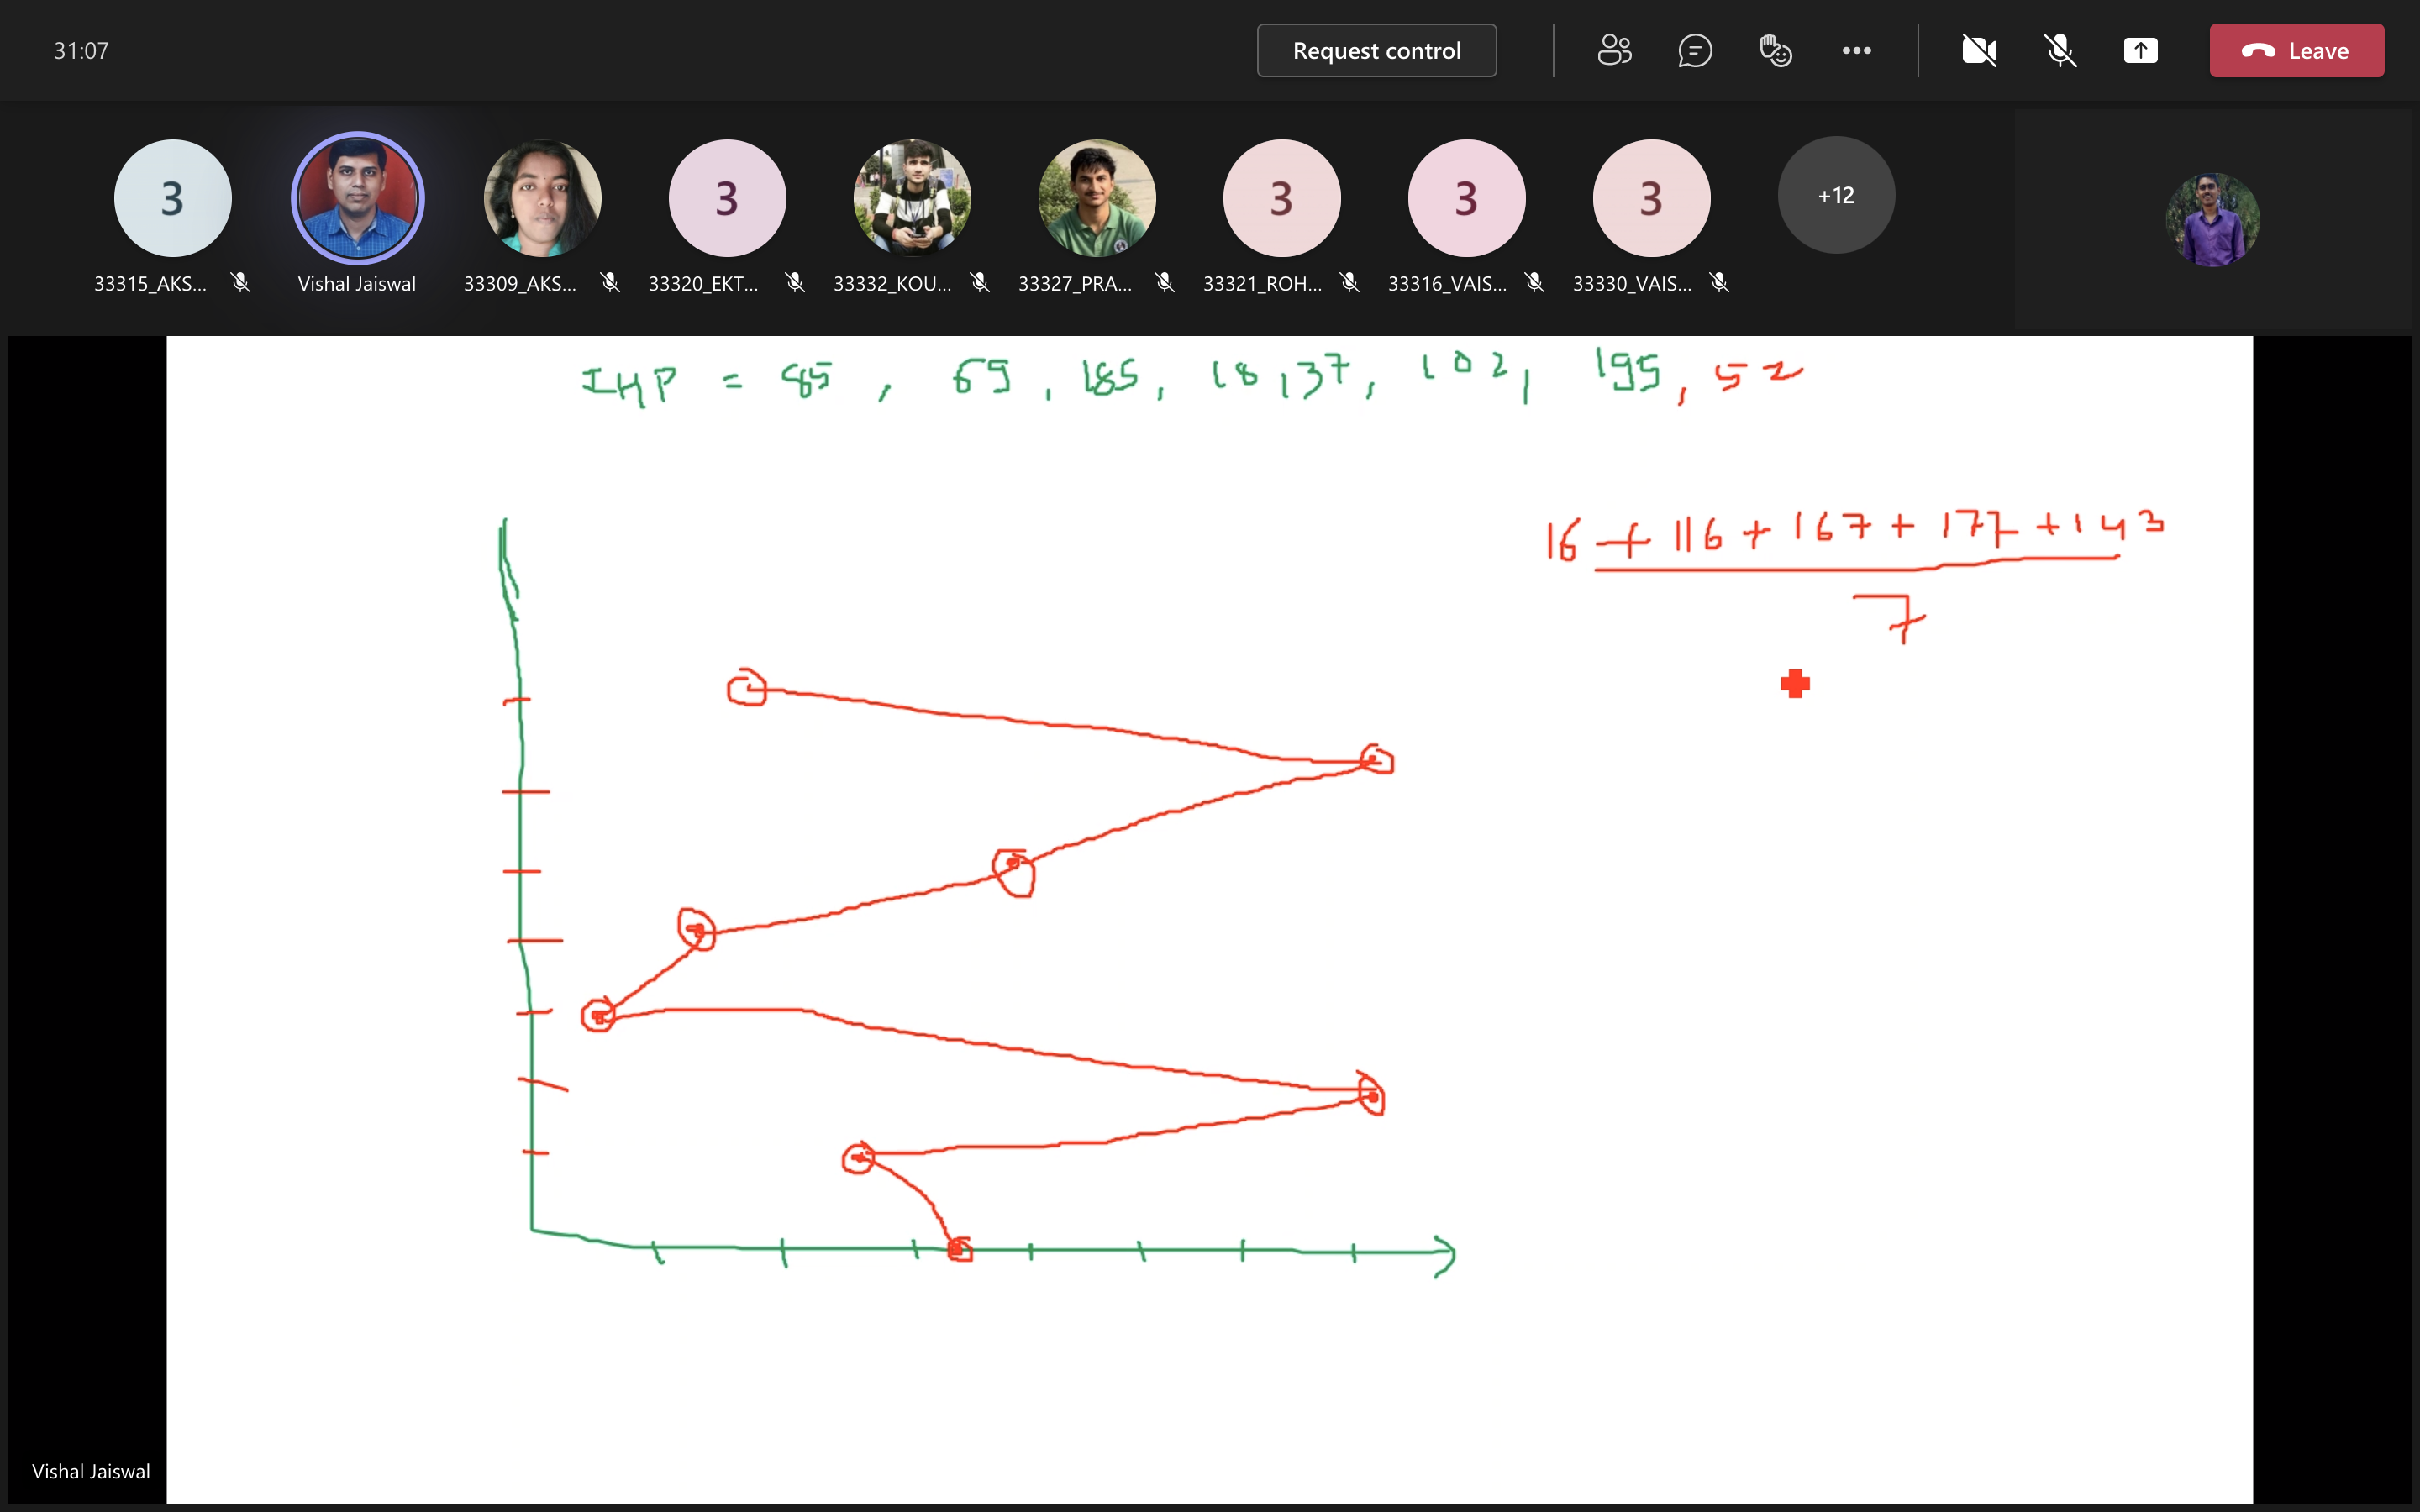 31:07
Request control
Leave
3
3
3
3
3
+12
33315_AKS...
Vishal Jaiswal
33309_AKS...
33320_EKT...
33332_KOU...
33327_PRA...
33321_ROH...
33316_VAIS...
33330_VAIS...
IHP = 85 , 69 , 185 , 18 , 37 , 102 , 195 , 52
16 + 116 + 167 + 177 + 143
7
Vishal Jaiswal